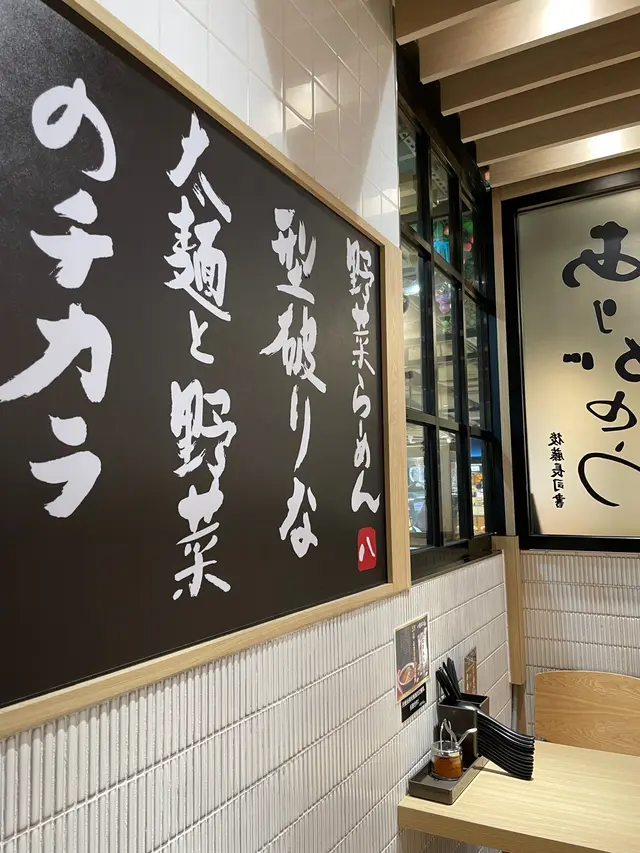 野菜らーめん 八
型破りな
太麺と野菜
のチカラ
ありがとう
後藤長司書